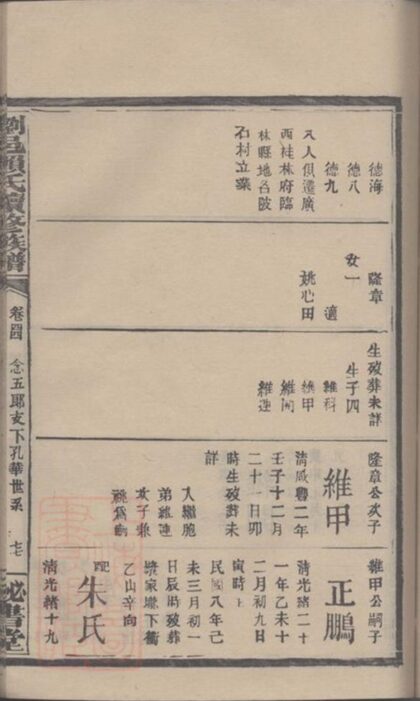 德海
德八
德九
人俱遷廣
西桂林府臨
林縣地名陂
石村立業
隆章
女一 適
姚心田
生歿葬未詳
生子四
維科
維甲
維連
隆章公次子
維甲
清咸豐二年
壬子十二月
二十一日卯
時生歿葬未
詳
入繼胞
弟維連
次子兼
祧爲嗣
維甲公嗣子
正鵬
清光緒二十
一年乙未十
二月初九日
寅時生
民國八年己
未三月初一
日辰時歿葬
家壠下衝
乙山辛向
配朱氏
清光緒十九
邑賴氏續修族譜
念五郎支下孔華世系
書堂